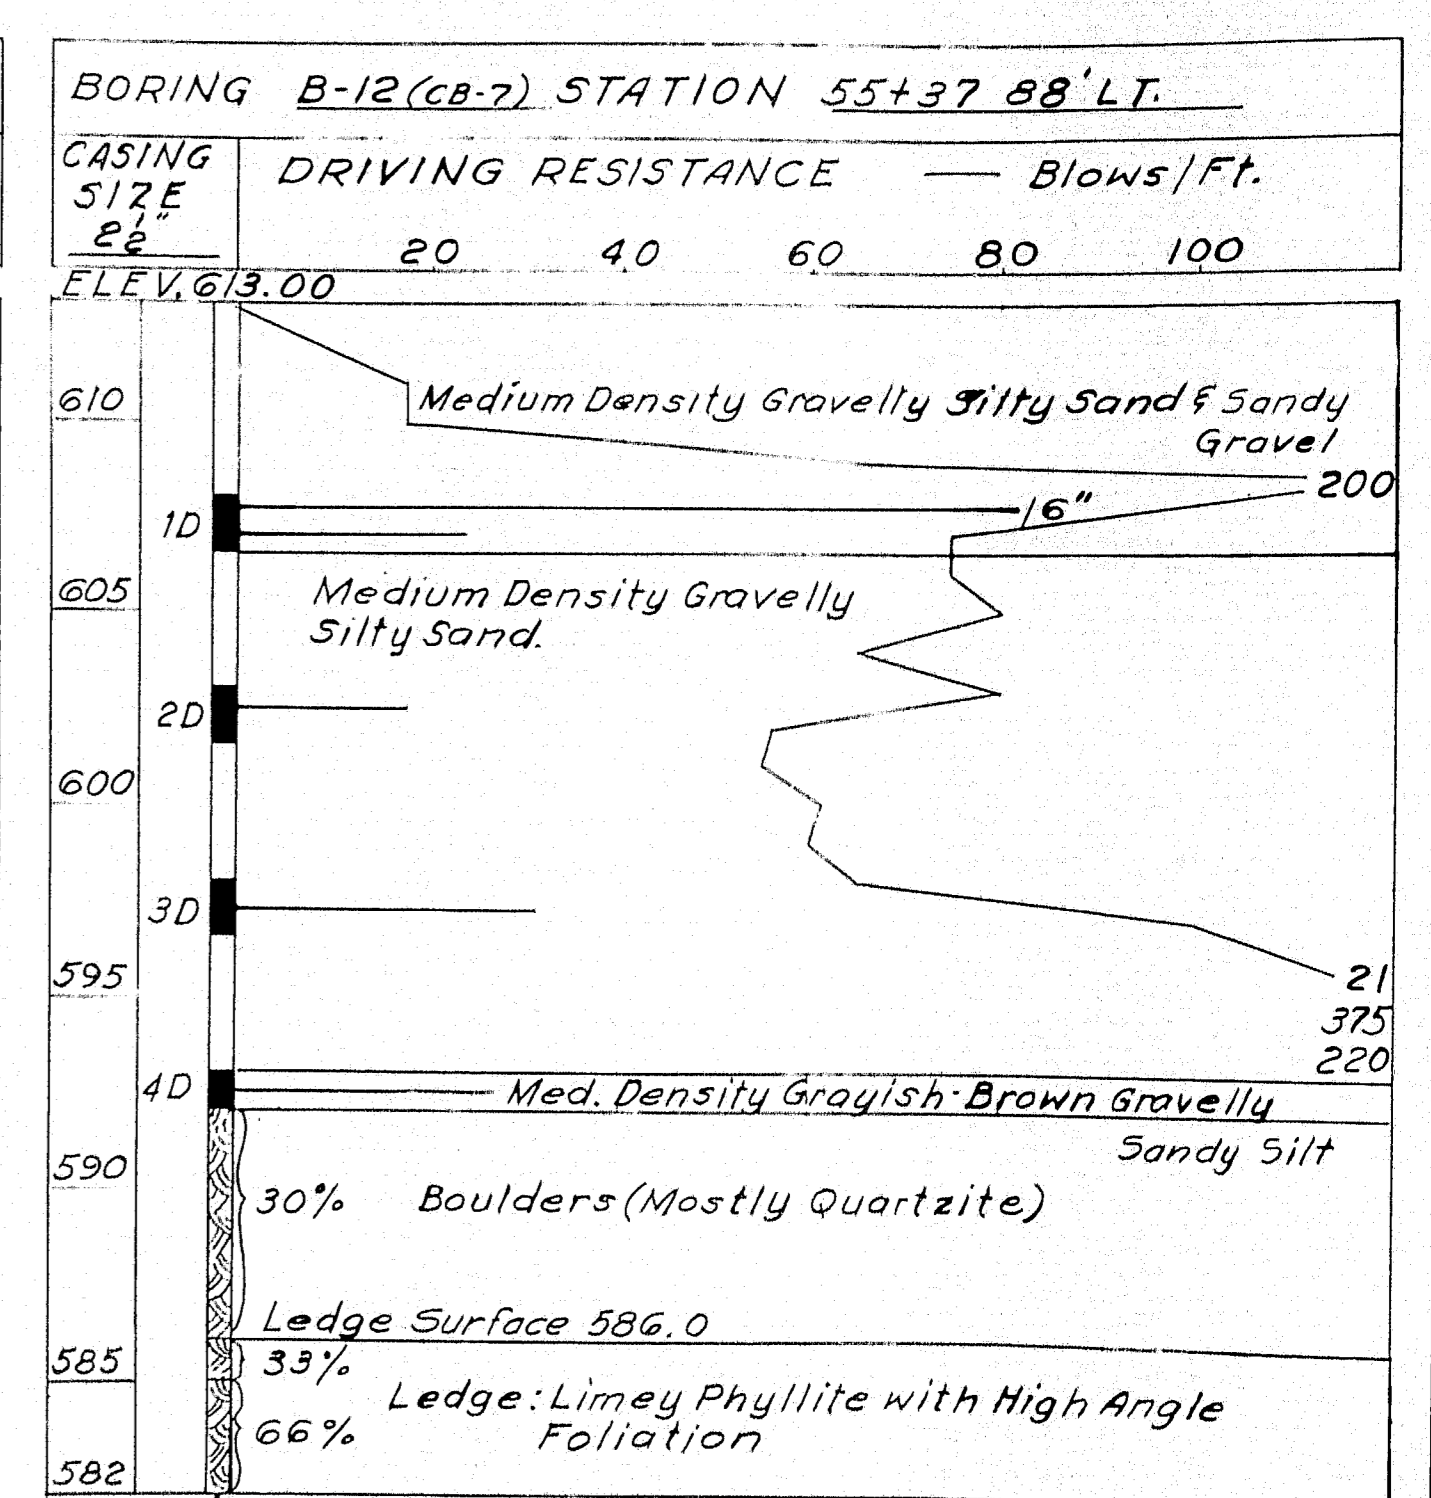 BORING B-12 (CB-7) STATION 55+37 88' LT.
CASING SIZE 2½"
DRIVING RESISTANCE — Blows/Ft.
20 40 60 80 100
ELEV. 613.00
610
Medium Density Gravelly Silty Sand & Sandy
Gravel
200
/6"
1D
605
Medium Density Gravelly
Silty Sand.
2D
600
3D
595
21
375
220
4D
Med. Density Grayish-Brown Gravelly
Sandy Silt
590
30% Boulders (Mostly Quartzite)
Ledge Surface 586.0
585
33%
Ledge: Limey Phyllite with High Angle
66% Foliation
582